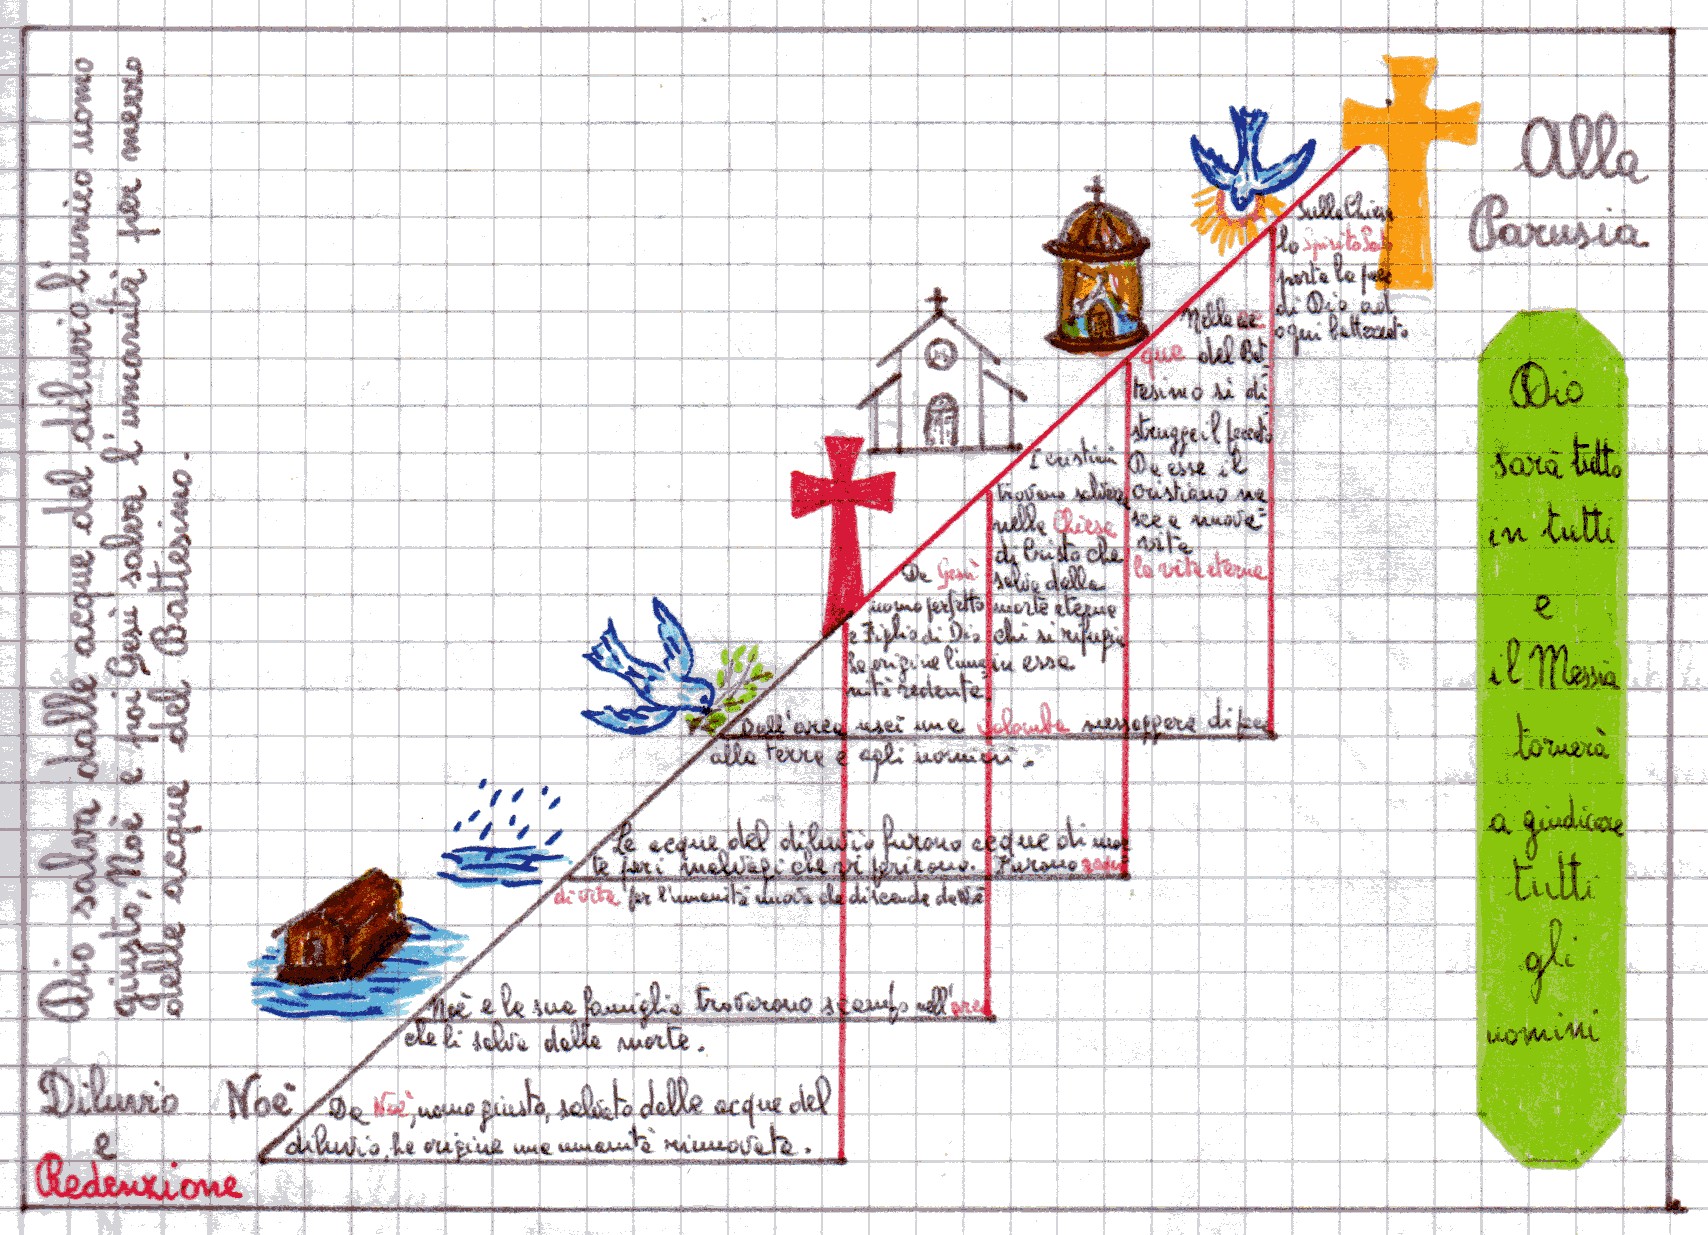 Dio salva dalle acque del diluvio l'unico uomo
giusto, Noè e poi Gesù salva l'umanità per mezzo
delle acque del Battesimo.
Diluvio
e
Redenzione
Noè
Da Noè, uomo giusto, salvato dalle acque del
diluvio, ha origine una umanità rinnovata.
Noè e la sua famiglia trovarono scampo nell'arca
che li salva dalla morte.
Le acque del diluvio furono acque di mor
te per i malvagi che vi perirono. Furono
di vita per l'umanità nuova che discende da
Dall'arca uscì una colomba messaggera di pace
alla terra e agli uomini.
Da Gesù
uomo perfetto
e Figlio di Dio
ha origine l'uma
nità redenta.
I cristiani
trovano salvezza
nella Chiesa
di Cristo che
salva dalla
morte eterna
chi si rifugia
in essa
Nelle ac
que del Bat
tesimo si di
strugge il peccato
Da esse il
cristiano na
sce a nuova
vita
la vita eterna
Sulla Chiesa
lo spirito Santo
porta la pace
di Dio ad
ogni battezzato
Alla
Parusia
Dio
sarà tutto
in tutti
e
il Messia
tornerà
a giudicare
tutti
gli
uomini